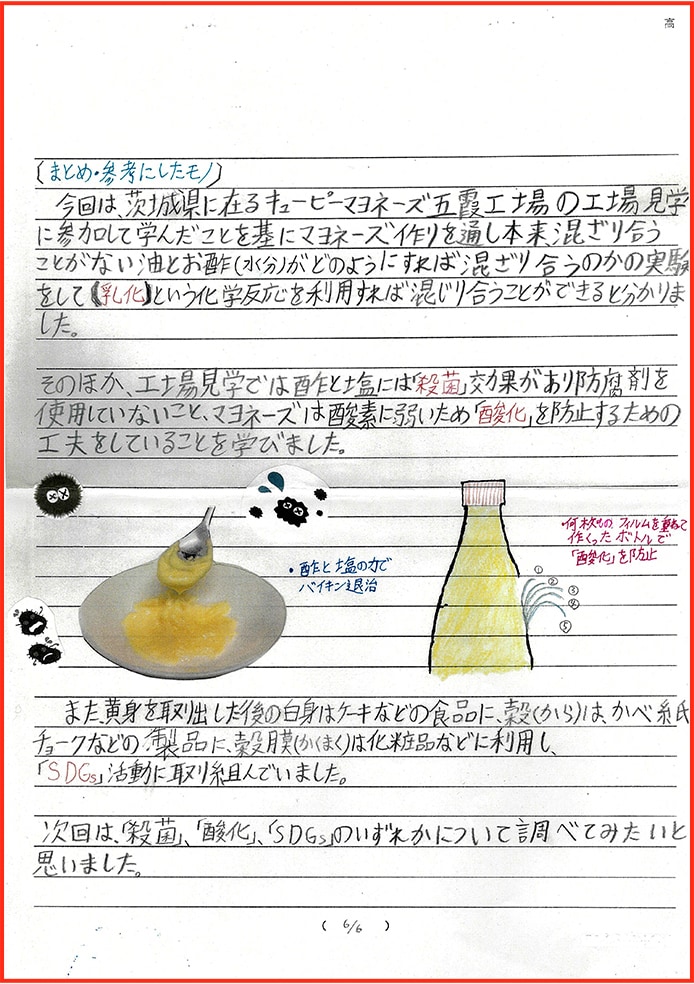 高
(まとめ・参考にしたモノ)
今回は、茨城県に在るキューピーマヨネーズ五霞工場の工場見学
に参加して学んだことを基にマヨネーズ作りを通し本来混ざり合う
ことがない油とお酢(水分)がどのようにすれば混ざり合うのかの実験
をして【乳化】という化学反応を利用すれば混じり合うことができると分かりま
した。
そのほか、工場見学では酢と塩には「殺菌」効果があり防腐剤を
使用していないこと、マヨネーズは酸素に弱いため「酸化」を防止するための
工夫をしていることを学びました。
・何枚もの、フィルムを重ねて
作くったボトルで
「酸化」を防止
・酢と塩の力で
バイキン退治
①
②
③
④
⑤
また、黄身を取り出した後の白身はケーキなどの食品に、殻(から)は、かべ紙
チョークなどの製品に、殻膜(かくまく)は化粧品などに利用し、
「SDGs」活動に取り組んでいました。
次回は、「殺菌」、「酸化」、「SDGs」のいずれかについて調べてみたいと
思いました。
( 6/6 )